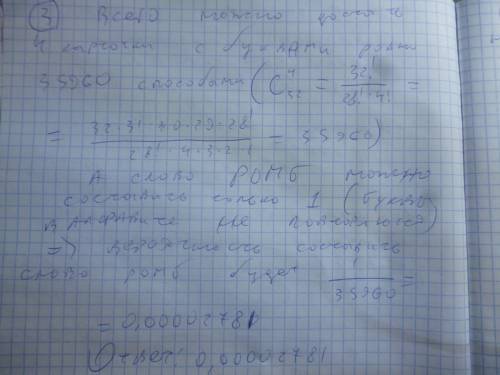 ③ Всего можно достать
4 карточки с буквами ровно
35960 способами (C⁴₃₂ = 32! / (28! · 4!) =
= 32 · 31 · 30 · 29 · 28! / (28! · 4 · 3 · 2 · 1) = 35960)
А слово РОМБ можно
составить только 1 (буквы
в алфавите не повторяются)
=> вероятность составить
слово ромб будет / 35960 =
= 0,00002781
Ответ: 0,00002781